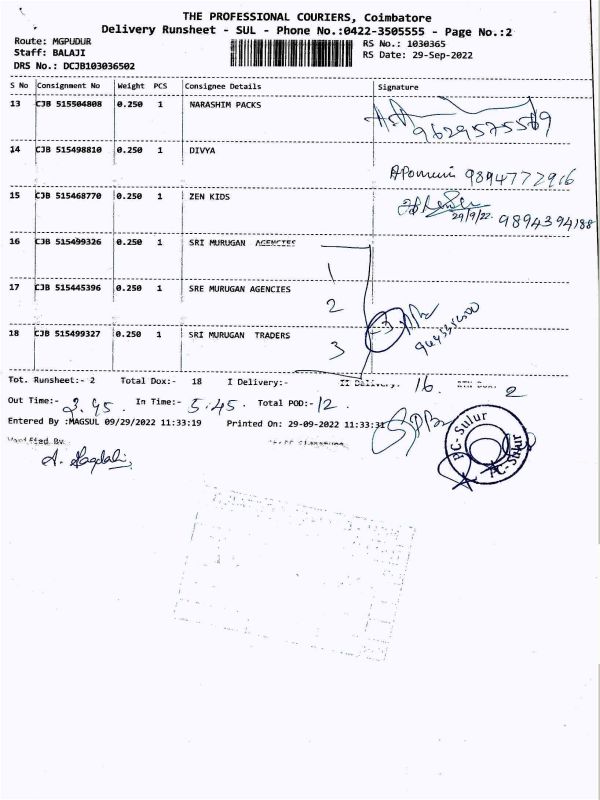 THE PROFESSIONAL COURIERS, Coimbatore
Delivery Runsheet - SUL - Phone No.:0422-3505555 - Page No.:2
Route: MGPUDUR
Staff: BALAJI
DRS No.: DCJB103036502
RS No.: 1030365
RS Date: 29-Sep-2022
S No Consignment No Weight PCS Consignee Details Signature
13 CJB 515504808 0.250 1 NARASHIM PACKS
9629575569
14 CJB 515498810 0.250 1 DIVYA
9894772916
15 CJB 515468770 0.250 1 ZEN KIDS
29/9/22 9894394188
16 CJB 515499326 0.250 1 SRI MURUGAN AGENCIES
1
17 CJB 515445396 0.250 1 SRE MURUGAN AGENCIES
2
18 CJB 515499327 0.250 1 SRI MURUGAN TRADERS
3
Tot. Runsheet:- 2 Total Dox:- 18 I Delivery:- II Delivery. 16. 2
Out Time:- 2.45. In Time:- 5:45. Total POD:- 12.
Entered By :MAGSUL 09/29/2022 11:33:19 Printed On: 29-09-2022 11:33:31
Verified By
PC-Sulur
PC-Sulur